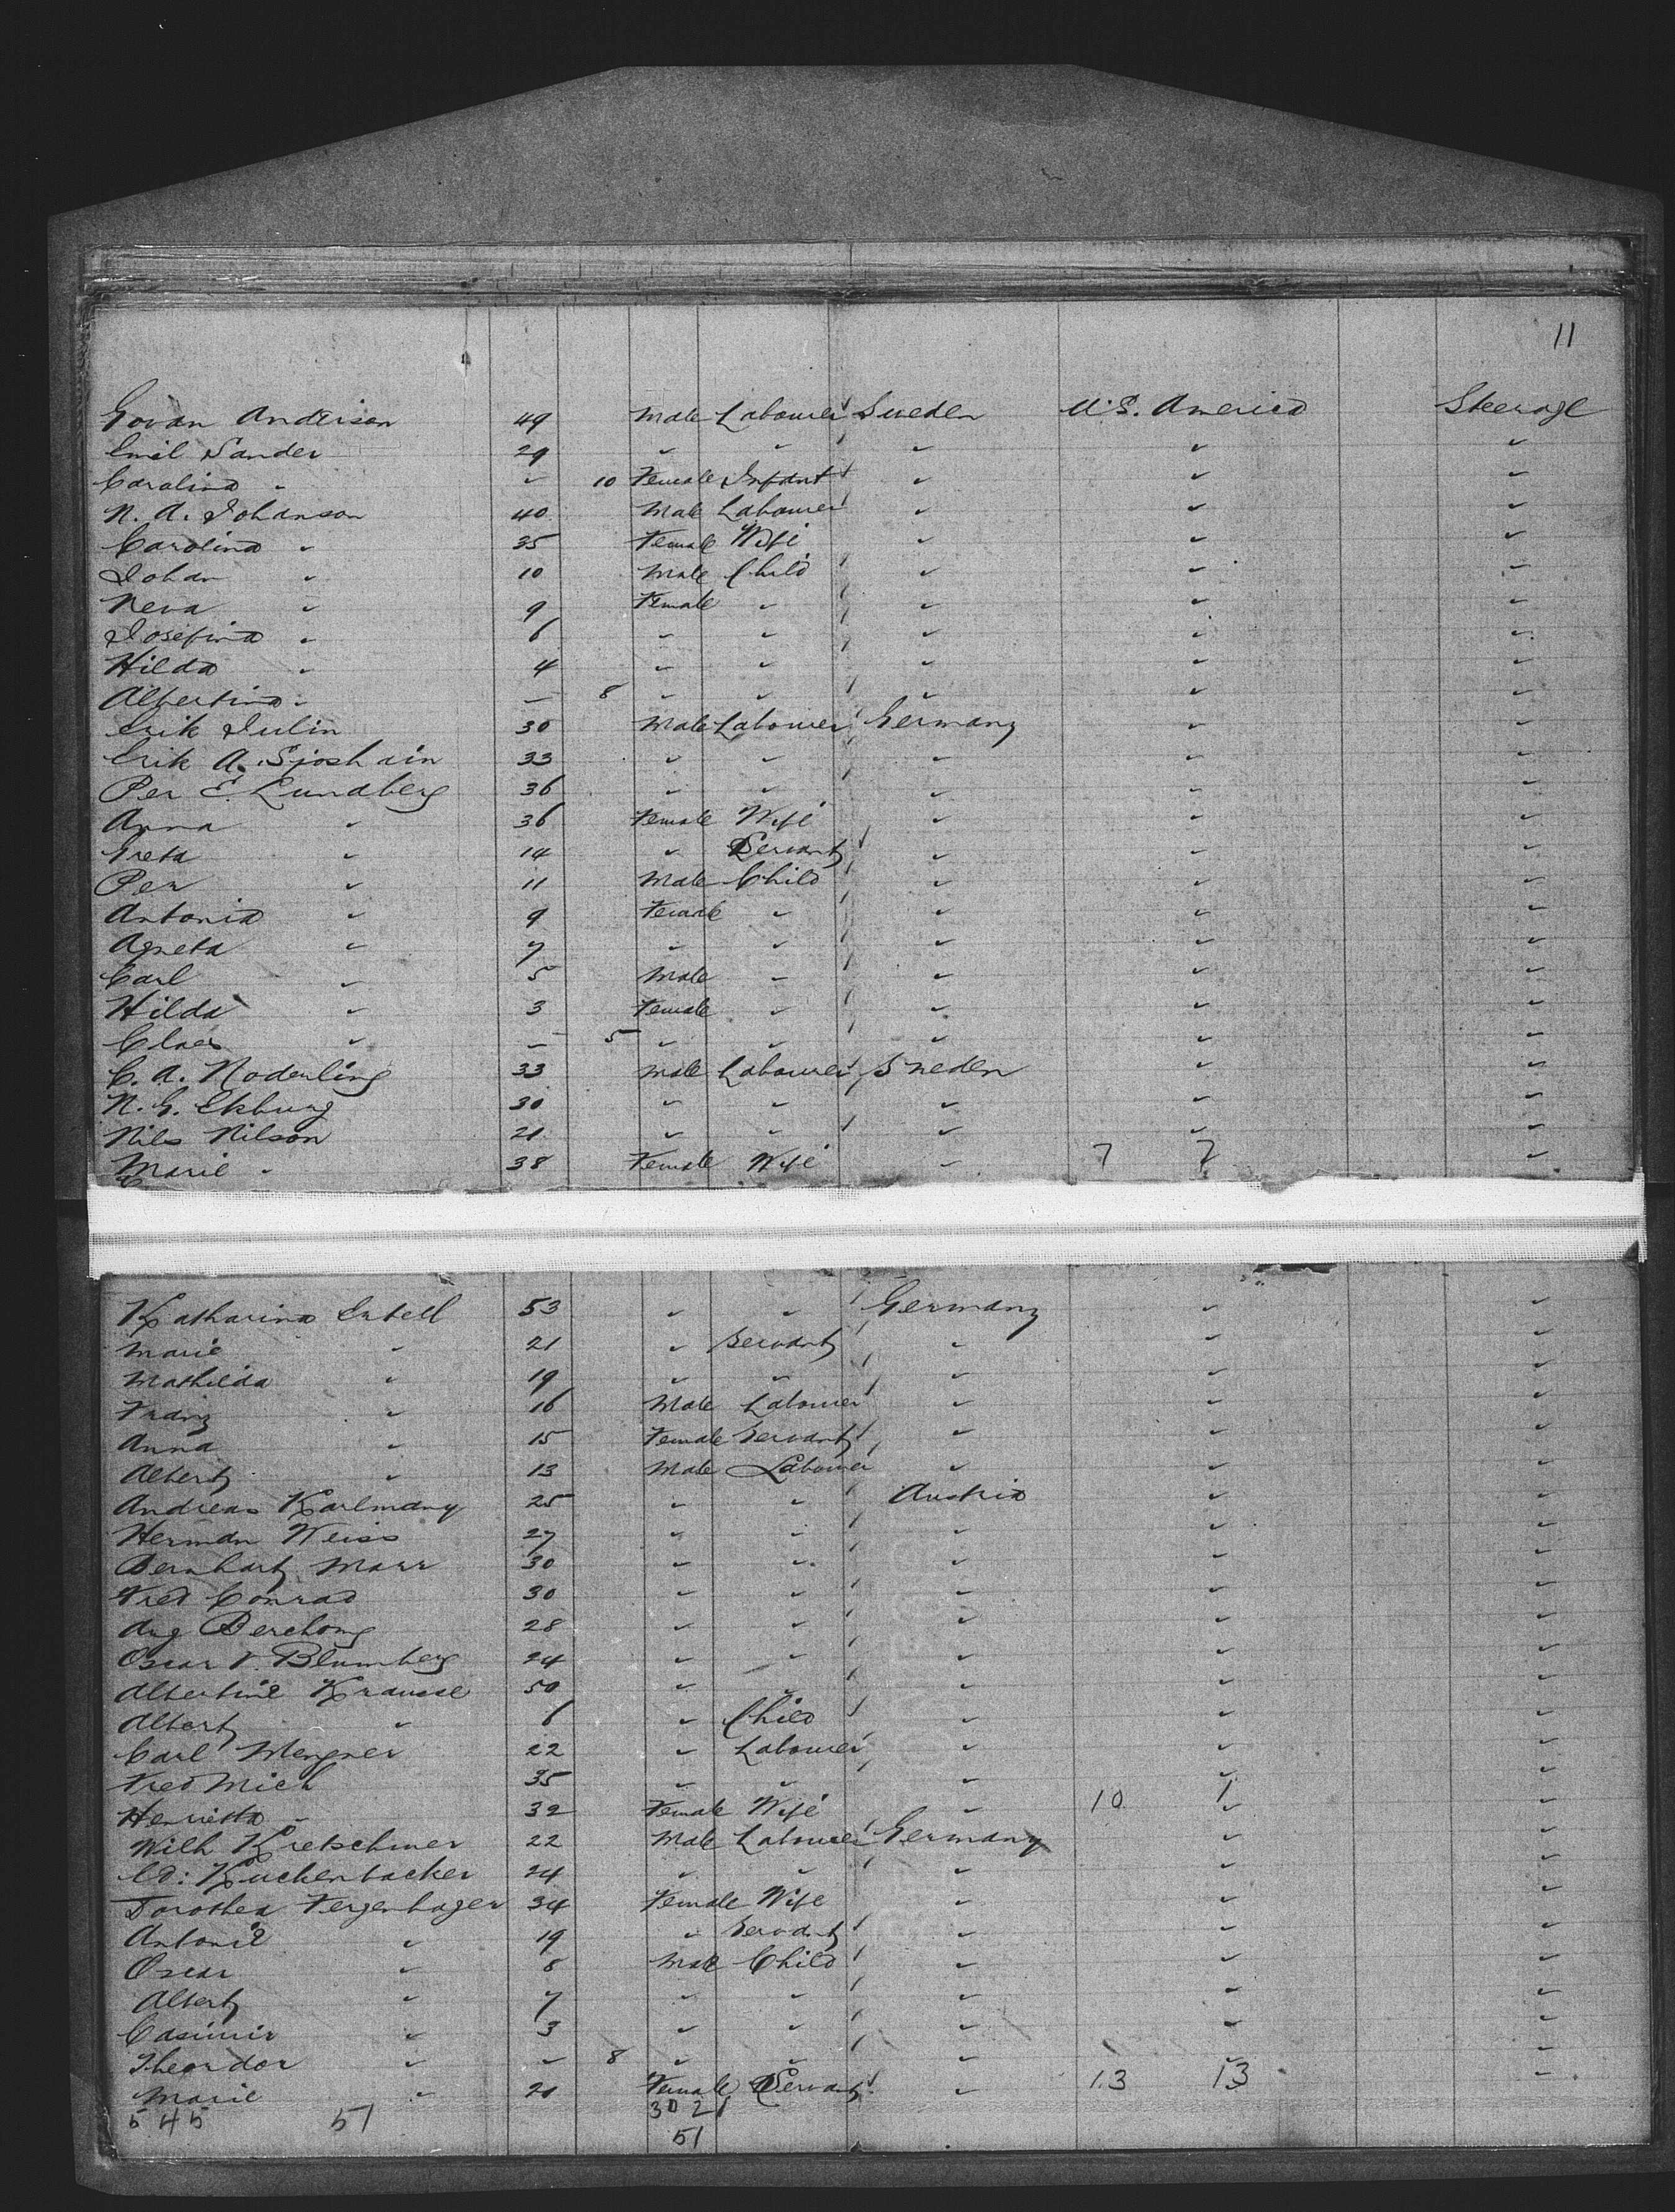 11
Govan Anderson 49 Male Labourer Sweden U.S. America Steerage
Emil Sander 29 " " " " "
Carolina " " 10 Female Infant " " "
N. A. Johanson 40 Male Labourer " " "
Carolina " 35 Female Wife " " "
Johan " 10 Male Child " " "
Neva " 9 Female " " " "
Josefina " 6 " " " " "
Hilda " 4 " " " " "
Albertina " — 8 " " " " "
Erik Julin 30 Male Labourer Germany " "
Erik A. 33 " " " " "
Per E. Lundberg 36 " " " " "
Anna " 36 Female Wife " " "
Greta " 14 " Servant " " "
Per " 11 Male Child " " "
Antonia " 9 Female " " " "
Agneta " 7 " " " " "
Carl " 5 Male " " " "
Hilda " 3 Female " " " "
Claes " — 5 " " " " "
C. A. Noderling 33 Male Labourer Sweden " "
N. G. Ekburg 30 " " " " "
Nils Nilson 21 " " " " "
Marie " 38 Female Wife " 7 7 "
Katharina 53 " " Germany " "
Marie " 21 " Servant " " "
Mathilda " 19 " " " " "
Franz " 16 Male Labourer " " "
Anna " 15 Female Servant " " "
Albert " 13 Male Labourer " " "
Andreas 25 " " Austria " "
Herman Weiss 27 " " " " "
Bernhart Marr 30 " " " " "
Fred Conrad 30 " " " " "
Aug 28 " " " " "
Oscar V. Blumberg 24 " " " " "
Albertine Krausse 50 " " " " "
Albert " 6 " Child " " "
Carl Mengner 22 " Labourer " " "
Fred Mich 35 " " " " "
Henrietta " 32 Female Wife " 10 1 " "
Wilh Kretschmer 22 Male Labourer Germany " "
Ed: Kuchenbacker 24 " " " " "
Dorothea Fergenhager 34 Female Wife " " "
Antonie " 19 " Servant " " "
Oscar " 8 Male Child " " "
Albert " 7 " " " " "
Casimir " 3 " " " " "
Theordor " " 8 " " " " "
Marie " 20 Female Servant " 13 13 "
545 51 30 21
51